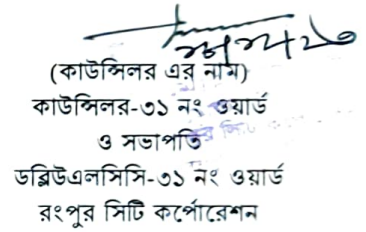 (কাউন্সিলর এর নাম)
কাউন্সিলর-৩১ নং ওয়ার্ড
ও সভাপতি
ডব্লিউএলসিসি-৩১ নং ওয়ার্ড
রংপুর সিটি কর্পোরেশন